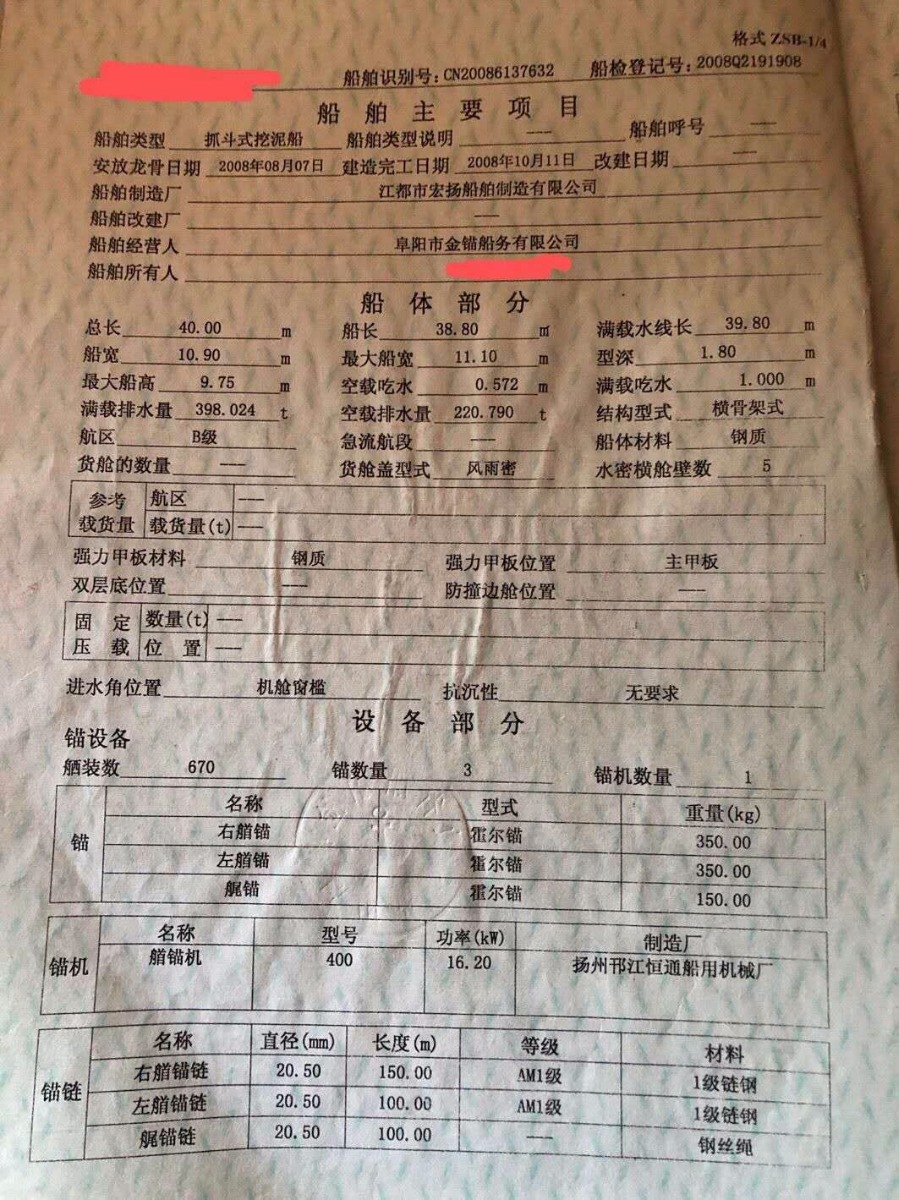 格式 ZSB-1/4
船舶识别号：CN20086137632 船检登记号：2008Q2191908
船舶主要项目
船舶类型 抓斗式挖泥船 船舶类型说明 --- 船舶呼号 ---
安放龙骨日期 2008年08月07日 建造完工日期 2008年10月11日 改建日期 ---
船舶制造厂 江都市宏扬船舶制造有限公司
船舶改建厂 ---
船舶经营人 阜阳市金锚船务有限公司
船舶所有人
船体部分
总长 40.00 m 船长 38.80 m 满载水线长 39.80 m
船宽 10.90 m 最大船宽 11.10 m 型深 1.80 m
最大船高 9.75 m 空载吃水 0.572 m 满载吃水 1.000 m
满载排水量 398.024 t 空载排水量 220.790 t 结构型式 横骨架式
航区 B级 急流航段 --- 船体材料 钢质
货舱的数量 --- 货舱盖型式 风雨密 水密横舱壁数 5
参考 航区 ---
载货量 载货量(t) ---
强力甲板材料 钢质 强力甲板位置 主甲板
双层底位置 --- 防撞边舱位置 ---
固定 数量(t) ---
压载 位置 ---
进水角位置 机舱窗槛 抗沉性 无要求
设备部分
锚设备
舾装数 670 锚数量 3 锚机数量 1
名称 型式 重量(kg)
锚 右艏锚 霍尔锚 350.00
左艏锚 霍尔锚 350.00
艉锚 霍尔锚 150.00
名称 型号 功率(kW) 制造厂
锚机 艏锚机 400 16.20 扬州邗江恒通船用机械厂
名称 直径(mm) 长度(m) 等级 材料
锚链 右艏锚链 20.50 150.00 AM1级 1级链钢
左艏锚链 20.50 100.00 AM1级 1级链钢
艉锚链 20.50 100.00 --- 钢丝绳